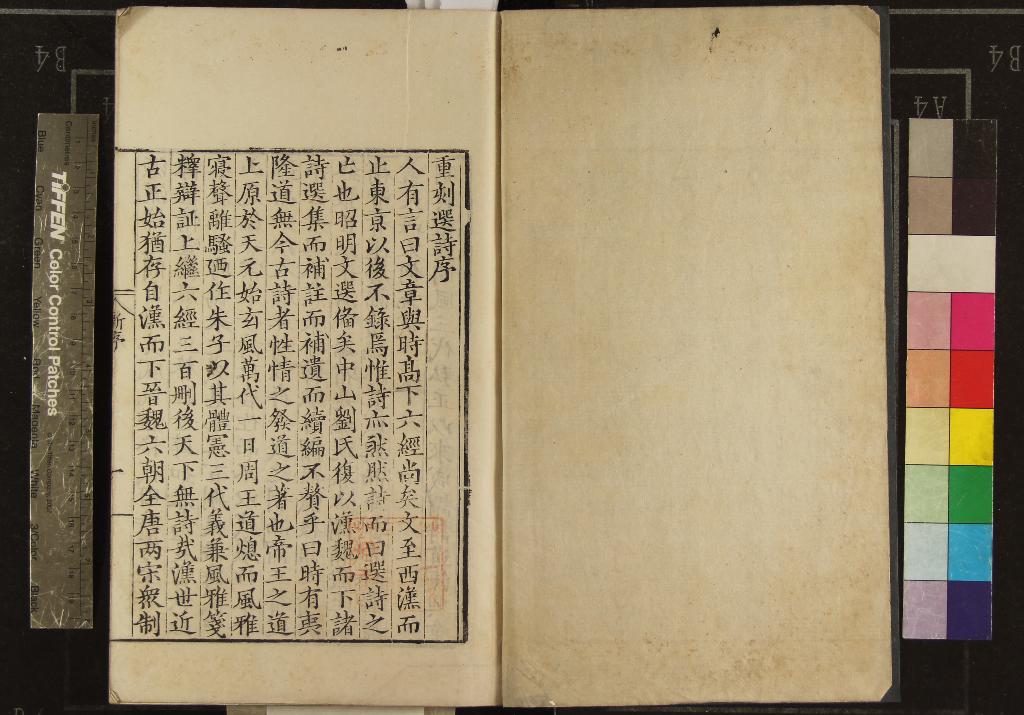 重刻選詩序
人有言曰文章與時髙下六經尚矣文至西漢而
止東京以後不錄焉惟詩亦然然詩而曰選詩之
亡也昭明文選俻矣中山劉氏復以漢魏而下諸
詩選集而補註而補遺而續編不贅乎曰時有夷
隆道無今古詩者性情之發道之著也帝王之道
上原於天元始玄風萬代一日周王道熄而風雅
寢聲離騷廼作朱子以其體憲三代義兼風雅箋
釋辯証上繼六經三百刪後天下無詩哉漢世近
古正始猶存自漢而下晉魏六朝全唐两宋衆制
新序
一
TIFFEN Color Control Patches
Centimetres
Inches
Blue
Cyan
Green
Yellow
Red
Magenta
White
3/Color
Black
B4
B4
A4